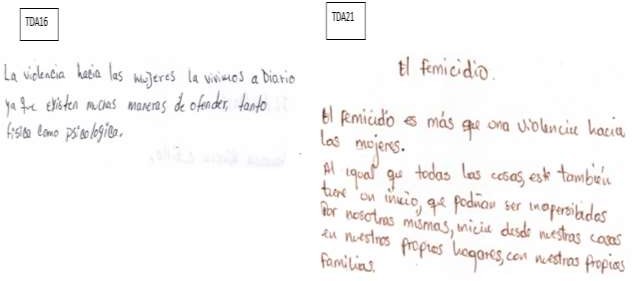 TDA16
La violencia hacia las mujeres la vivimos a Diario
ya que existen muchas maneras de ofender, tanto
física como psicológica.
TDA21
El femicidio.
El femicidio es más que una violencia hacia
las mujeres.
Al igual que todas las cosas, este también
tiene un inicio, que podrían ser inapersibidas
Por nosotras mismas, inicia desde nuestras casas
en nuestros propios hogares, con nuestras propias
familias.